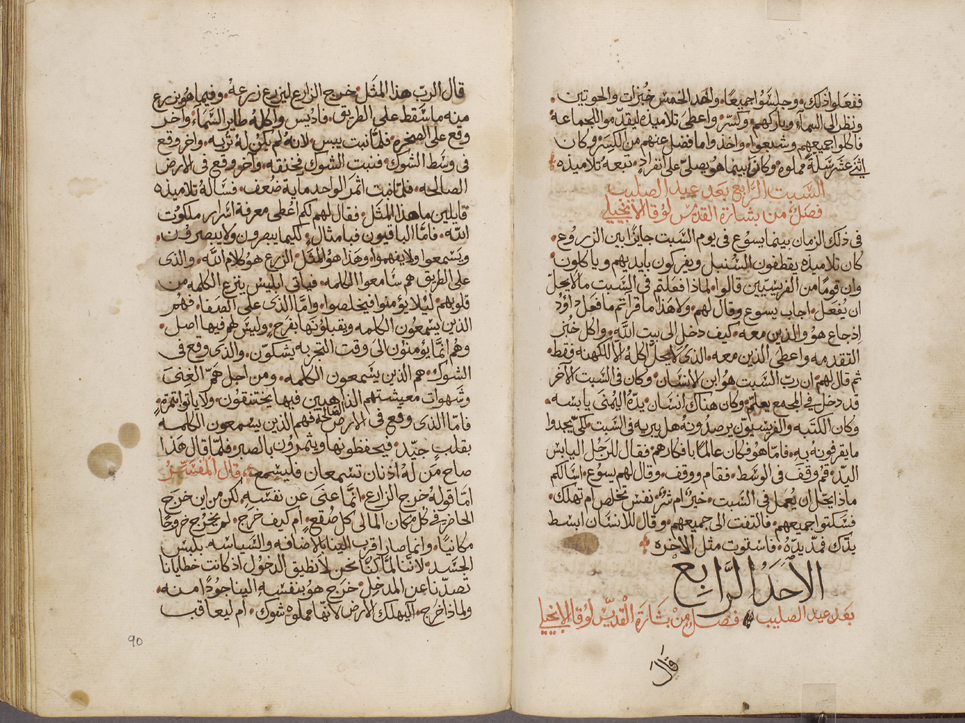 ففعلوا ذلك وجلسوا جميعا واخذ الخمس خبزات والحوتين
ونظر الى السماء وباركهم وكسر واعطى تلاميذه ليقدموا للجماعة
فاكلوا جميعهم وشبعوا واخذوا ما فضل عنهم من الكسر وكان
اثنى عشر سلة مملوه وكان بينما هو يصلى على انفراد تبعه تلاميذه
السبت الرابع بعد عيد الصليب
فصل من بشارة القديس لوقا الانجيلى
فى ذلك الزمان بينما يسوع فى يوم السبت جائزا بين الزروع
كان تلاميذه يقطفون السنبل ويفركون بايديهم وياكلون
وان قوما من الفريسيين قالوا لماذا فعلتم فى السبت ما لا يحل
ان يفعل اجاب يسوع وقال لهم ولا هذا ما قراتم ما فعل داود
اذ جاع هو والذين معه كيف دخل الى بيت الله واكل خبز
التقدمه واعطى الذين معه الذى لا يحل اكله الا للكهنة فقط
ثم قال لهم ان رب السبت هو ابن الانسان وكان فى السبت الاخر
قد دخل فى المجمع يعلم وكان هناك انسان يده اليمنى يابسه
وكان الكتبه والفريسيون يرصدونه هل يبريه فى السبت لكى يجدوا
ما يقرفونه به فاما هو فكان عالما بافكارهم فقال للرجل اليابس
اليد قم وقف فى الوسط فقام ووقف وقال لهم يسوع اسالكم
ماذا يحل ان يعمل فى السبت خيرا ام شر نفس تخلص ام تهلك
فسكتوا جميعهم فالتفت الى جميعهم وقال للانسان ابسط
يدك فمد يده فاستوت مثل الاخره
الاحد الرابع
بعد عيد الصليب فصل من بشارة القديس لوقا الانجيلى
قال
قال الرب هذا المثل خرج الزارع ليزرع زرعه وفيما هو يزرع
منه ما سقط على الطريق فاديس واكله طاير السماء واخر
وقع على الصخره فلما نبت يبس لانه لم يكن له ثريه واخر وقع
فى وسط الشوك فنبت الشوك فخنقه واخر وقع فى الارض
الصالحه فلما نبت اثمر الواحد ماية ضعف فساله تلاميذه
قايلين ما هذا المثل فقال لهم لكم اعطى معرفة اسرار ملكوت
الله فاما الباقيون فبامثال لكيما يبصرون ولا يبصرون
ويسمعوا ولا يفهموا وهذا هو المثل الزرع هو كلام الله والذى
على الطريق هم سامعوا الكلمه فياتى ابليس ينزع الكلمه من
قلوبهم ليلا يؤمنوا فيخلصوا واما الذى على الصفا فهم
الذين يسمعون الكلمه ويقبلونها بفرح وليس لهم فيها اصل
وهم انما يؤمنون الى وقت التجربه يشكون والذى وقع فى
الشوك هم الذين يسمعون الكلمه ومن اجل هم الغنى
وشهوات معيشتهم الذاهبين فيها يختنقون ولا ياتوا ثمرة
فاما الذى وقع فى الارض الصالحة فهم الذين يسمعون الكلمه
بقلب جيد فيحفظونها ويثمرون بالصبر فلما قال هذا
صاح من له اذنان تسمعان فليسمع قال المفسر
اما قوله خرج الزارع انما عنى عن نفسه لكن من اين خرج
الحاضر فى كل مكان المالى كل صقع ام كيف خرج لم يخرج خروجا
مكانيا وانما صار اقرب الينا بالاضافه والسياسه بلبس
الجسد لاننا لما كنا نحن لا نطيق الدخول اذ كانت خطايانا
تصدنا عن المدخل خرج هو بنفسه الينا جودا منه
ولماذا خرج اليهلك الارض لانها مملوه شوك ام ليعاقب
90